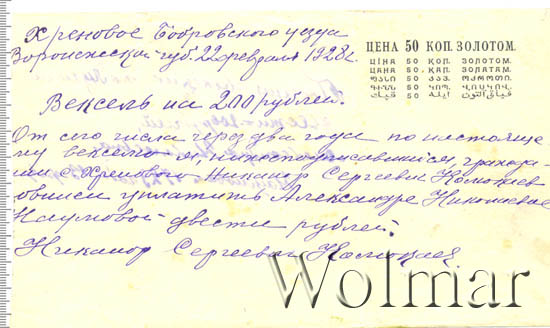 Хреновое Бобровского уезда
Воронежской губ. 22 февраля 1928 г.
ЦЕНА 50 КОП. ЗОЛОТОМ.
ЦІНА 50 КОП. ЗОЛОТОМ.
ЦАНА 50 КАП. ЗОЛАТАМ.
Вексель на 200 рублей.
От сего числа через два года по настояще
му векселю я, нижеподписавшийся, гражда
нин с. Хренового Никанор Сергеевич
обязан уплатить Александре Николаевне
Наумовой двести рублей.
Никанор Сергеевич
Wolmar